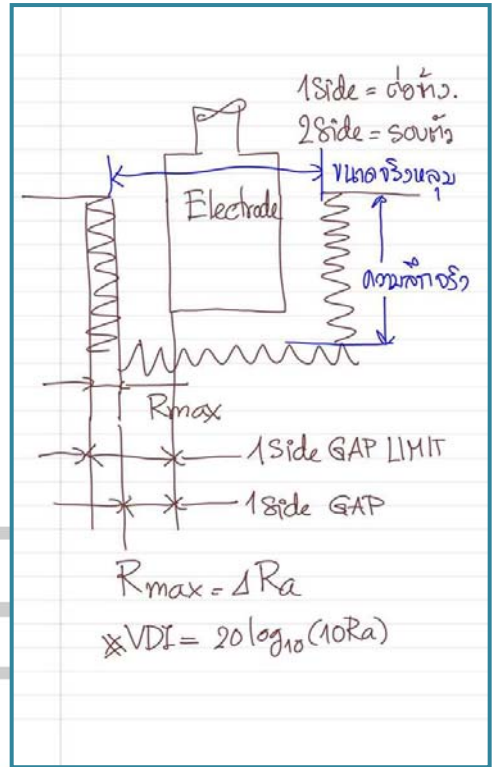 1Side = ต่อข้าง.
2Side = รอบตัว
ขนาดจริงหลุม
Electrode
ความลึกจริง
Rmax
1Side GAP LIMIT
1Side GAP
Rmax = ΔRa
※VDI = 20log₁₀(10Ra)